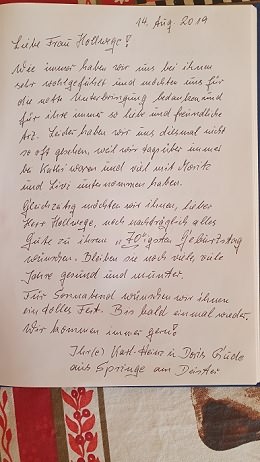 14. Aug. 2019
Liebe Frau Hollwege!
Wie immer haben wir uns bei ihnen
sehr wohlgefühlt und möchten uns für
die nette Unterbringung bedanken und
für ihre immer so liebe und freundliche
Art. Leider haben wir uns diesmal nicht
so oft gesehen, weil wir tagsüber immer
bei Kathi waren und viel mit Moritz
und Livi unternommen haben.
Gleichzeitig möchten wir ihnen, lieber
Herr Hollwege, noch nachträglich alles
Gute zu ihrem „70"igsten Geburtstag
wünschen. Bleiben sie noch viele, viele
Jahre gesund und munter.
Für Sonnabend wünschen wir ihnen
ein tolles Fest. Bis bald einmal wieder.
Wir kommen immer gern!
Ihr(e) Karl-Heinz u. Doris
aus Springe am Deister